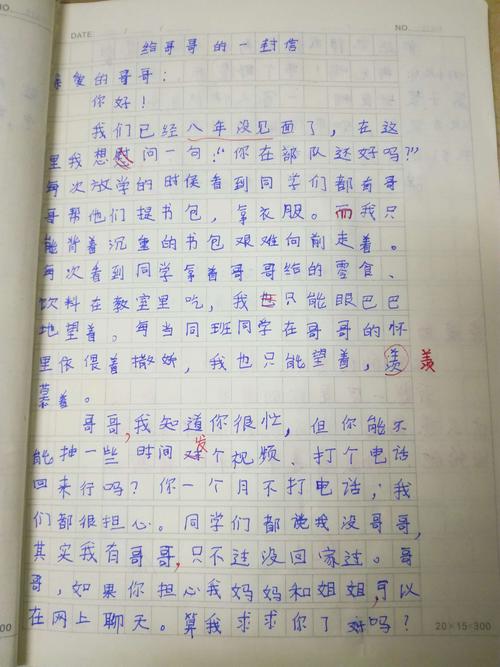 DATE: / / NO.
给哥哥的一封信
亲爱的哥哥：
你好！
我们已经八年没见面了，在这
里我想慰问一句：“你在部队还好吗？”
每次放学的时候看到同学们都有哥
哥帮他们提书包，拿衣服。而我只
能背着沉重的书包艰难向前走着。
每次看到同学拿着哥哥给的零食、
饮料在教室里吃，我也只能眼巴巴
地望着。每当同班同学在哥哥的怀
里依偎着撒娇，我也只能望着，羡 羡
慕着。
哥哥，我知道你很忙，但你能不
能抽一些时间发个视频、打个电话
回来行吗？你一个月不打电话，我
们都很担心。同学们都说我没哥哥，
其实我有哥哥，只不过没回家过。哥
哥，如果你担心我妈妈和姐姐，可以
在网上聊天。算我求求你了好吗？
20×15=300